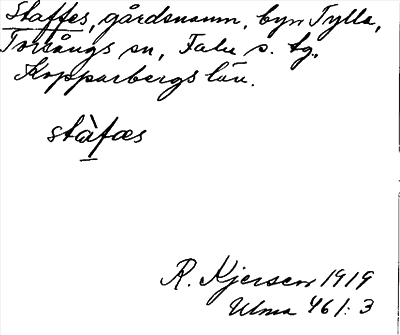 Staffes, gårdsnamn, byn Tylla,
Torsångs sn, Falu s. tg,
Kopparbergs län.
stàfæs
R. Kjersen 1919
Ulma 461:3